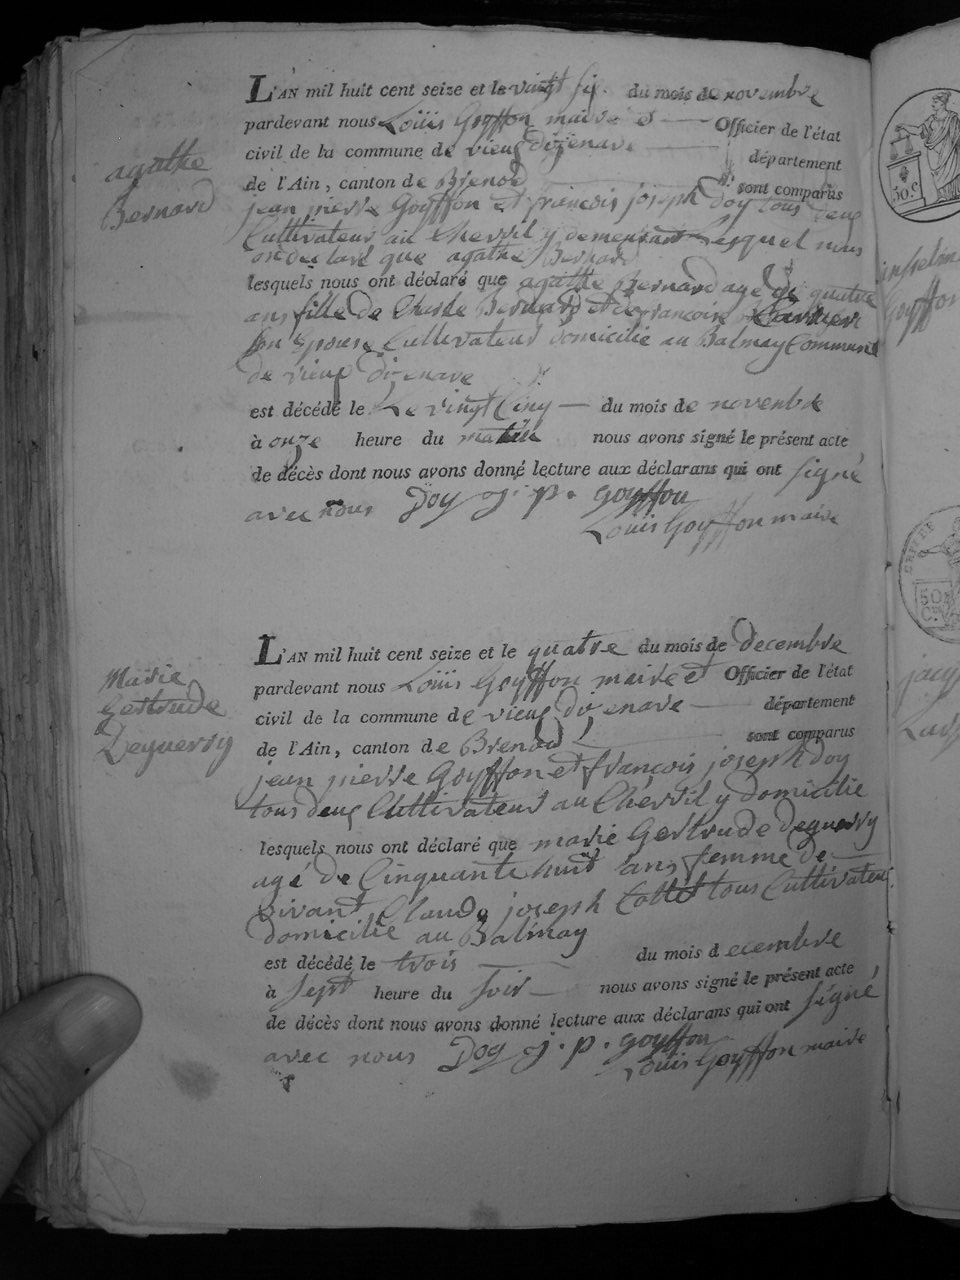 agathe
Bernard
L'AN mil huit cent seize et le vingt six du mois de novembre
pardevant nous Louis Goyffon maire et Officier de l'état
civil de la commune de vieux dizenave département
de l'Ain, canton de Brenod sont comparus
jean pierre Goyffon et françois joseph Doy tous deux
Cultivateur au Chevril y demeurant Lesquel nous
on declaré que agathe Bernard
lesquels nous ont déclaré que agathe Bernard age de quatre
ans fille de Charle Bernard et de francoise
son epouse Cultivateur domicilie au Balmay Commune
de vieux dizenave
est décédé le Le vingt Cinq du mois de novenbre
à onze heure du matin nous avons signé le présent acte
de décès dont nous avons donné lecture aux déclarans qui ont signé
avec nous Doy j. p. goyffon
Louis Goyffon maire
Marie
Gertrude
Deguerry
L'AN mil huit cent seize et le quatre du mois de Decembre
pardevant nous Louis Goyffon maire et Officier de l'état
civil de la commune de vieux dizenave département
de l'Ain, canton de Brenod sont comparus
jean pierre Goyffon et françois joseph doy
tous deux Cultivateur au Chevril y domicilie
lesquels nous ont déclaré que marie Gertrude deguerry
age de Cinquante huit ans femme de
vivant Claude joseph tous Cultivateur
domicilie au Balmay
est décédé le trois du mois d ecembre
à sept heure du soir nous avons signé le présent acte
de décès dont nous avons donné lecture aux déclarans qui ont signé
avec nous Doy j. p. goyffon
Louis Goyffon maire
50 c.
Goyffon
50
C.